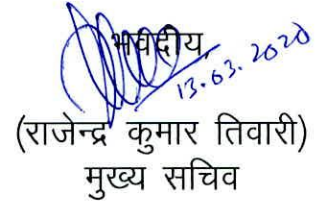 भवदीय,
13.03.2020
(राजेन्द्र कुमार तिवारी)
मुख्य सचिव